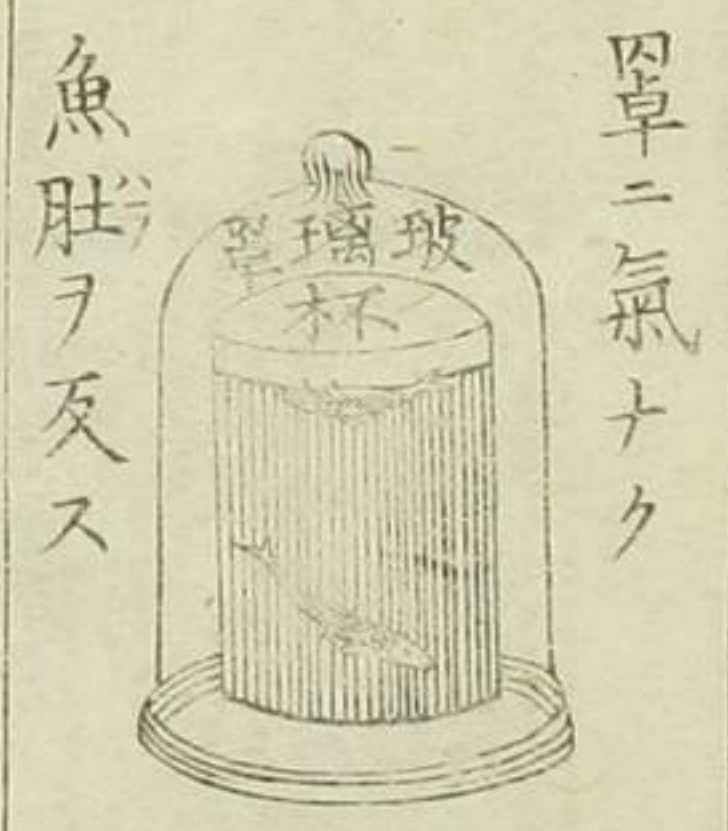 罩ニ氣ナク
玻璃罩
杯
魚肚ヲ反ス
ハラ